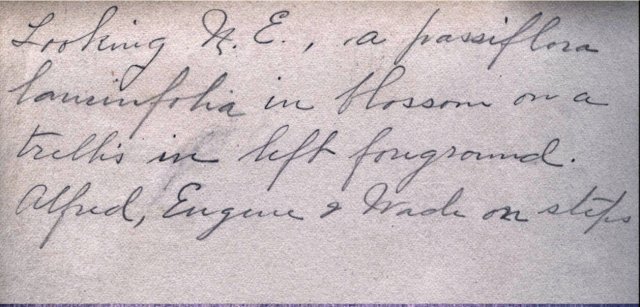 Looking N. E., a passiflora
laurinfolia in blossom on a
trellis in left foreground.
Alfred, Eugene & Wade on steps